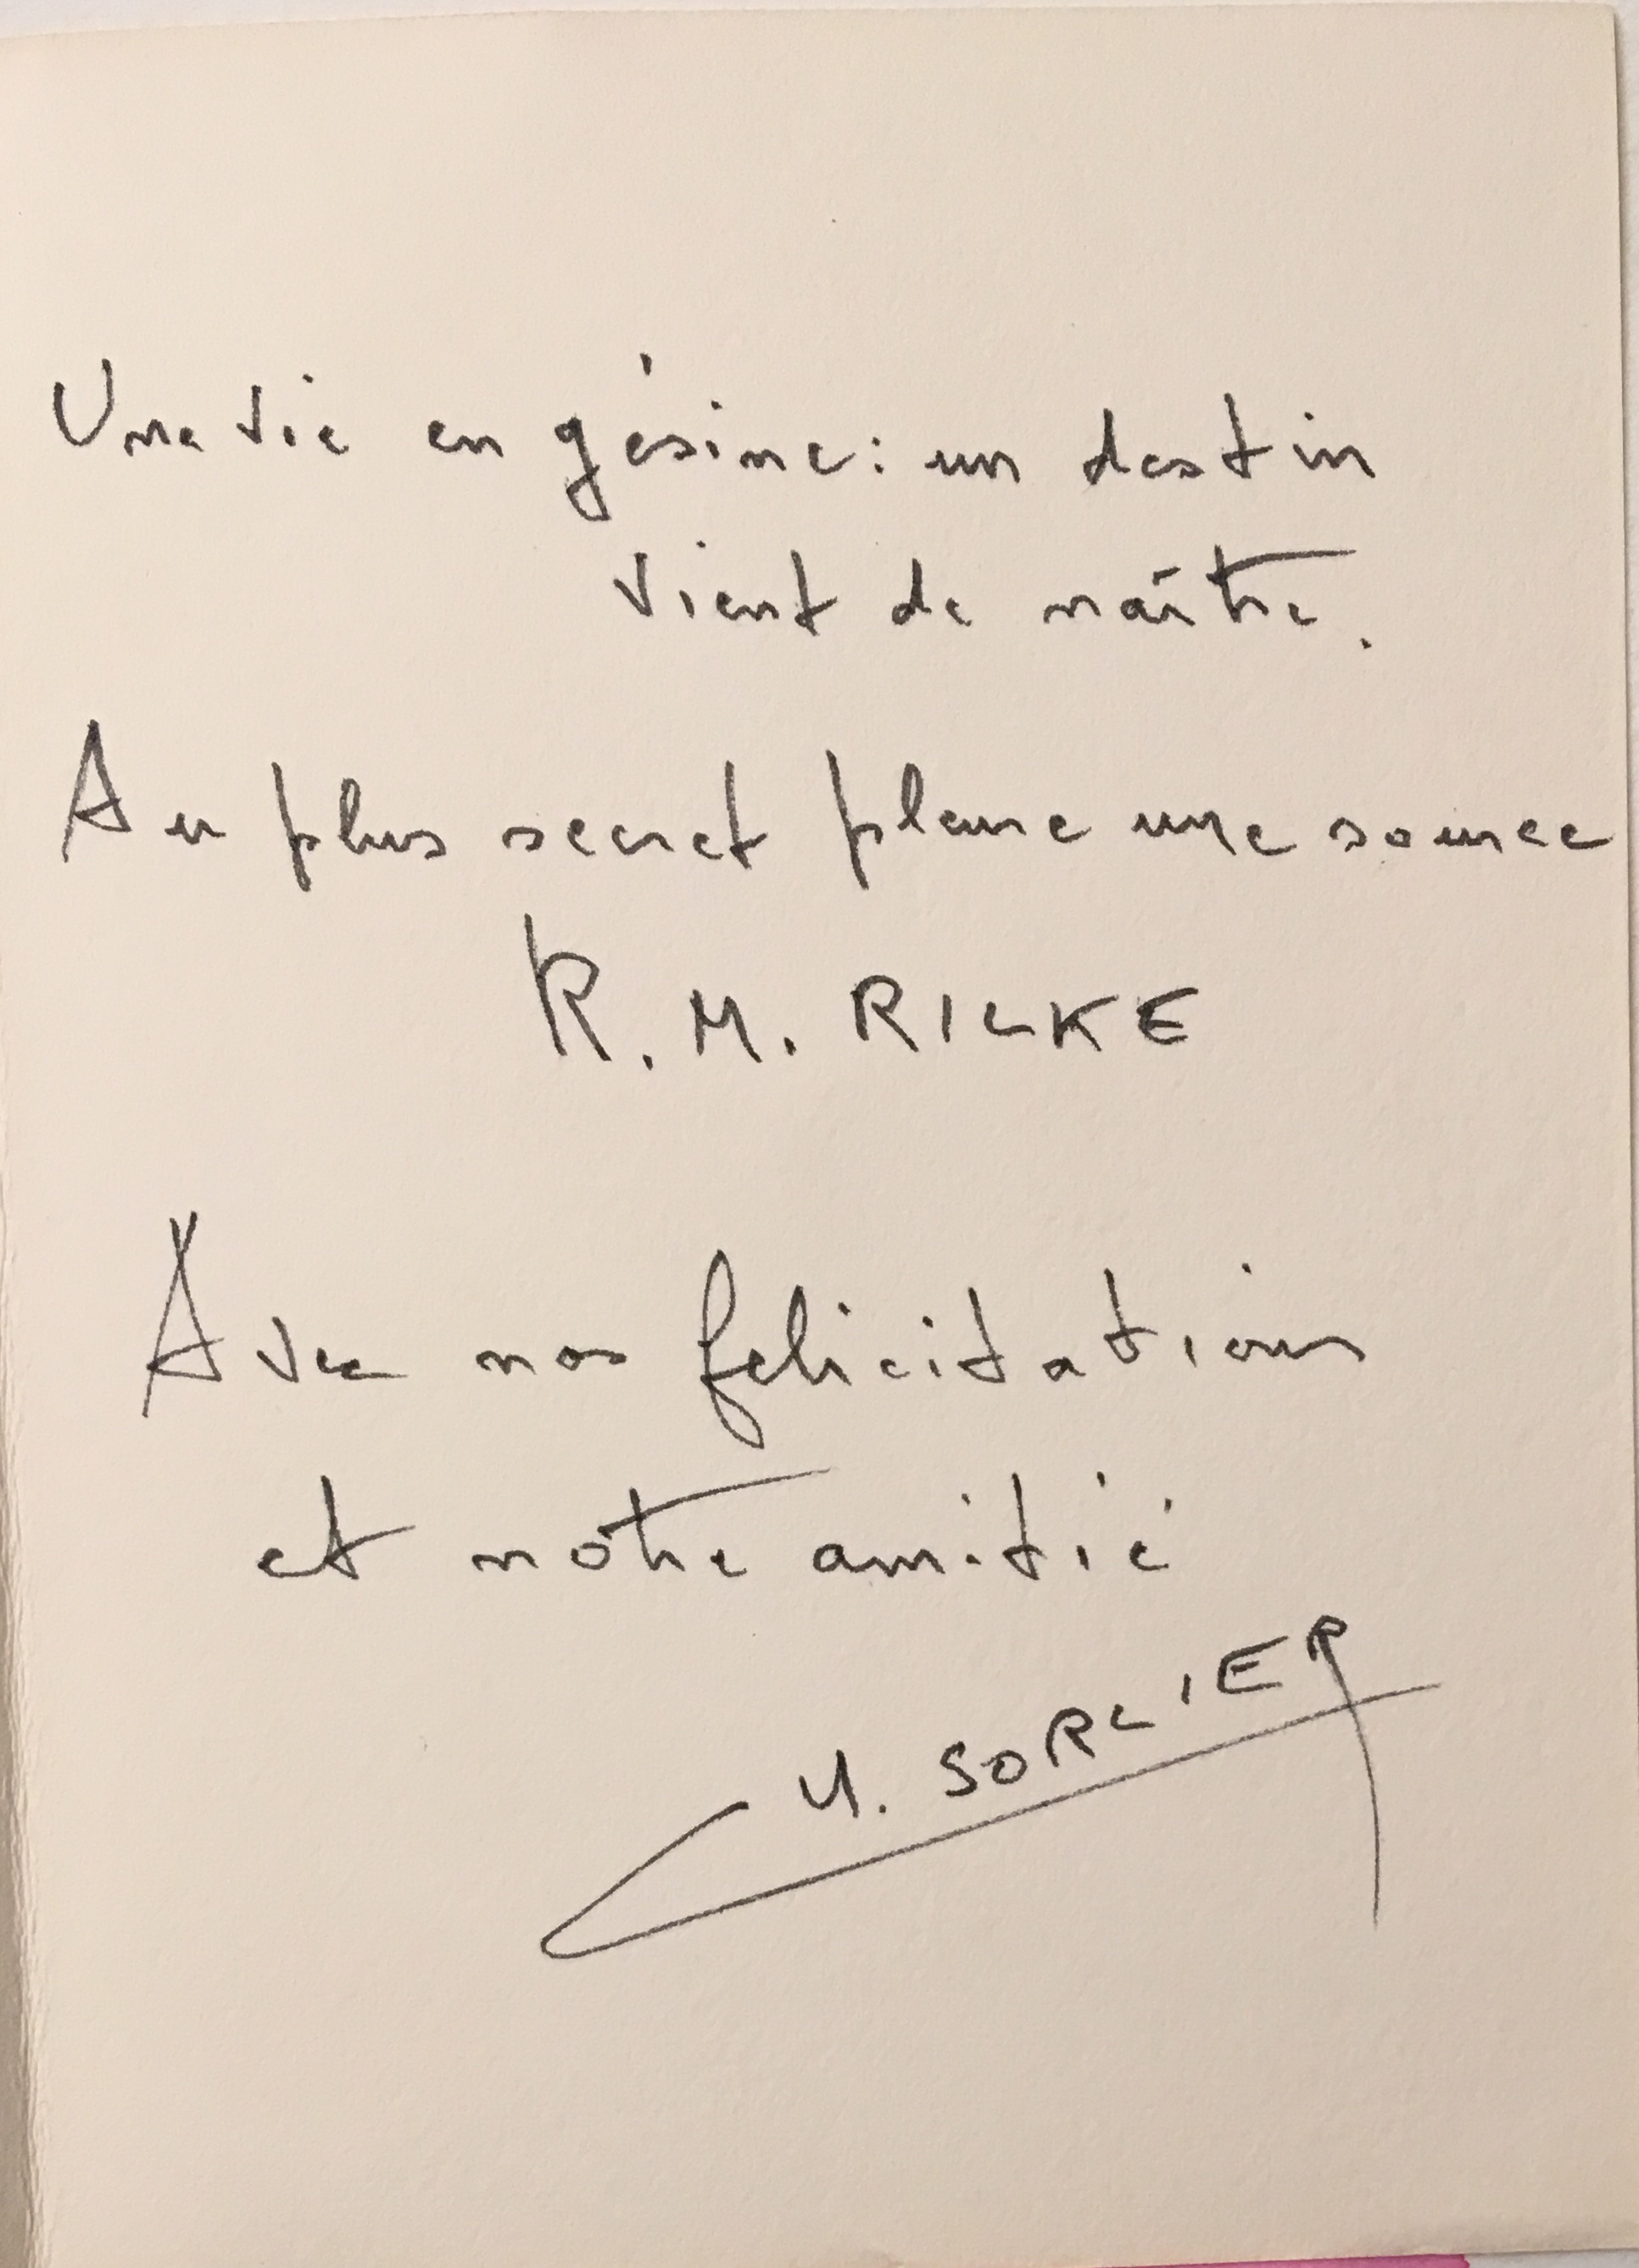 Une vie en gésine : un destin
vient de naître.
Au plus secret pleure une source
R. M. RILKE
Avec nos felicitations
et nôtre amitié
SORLIER